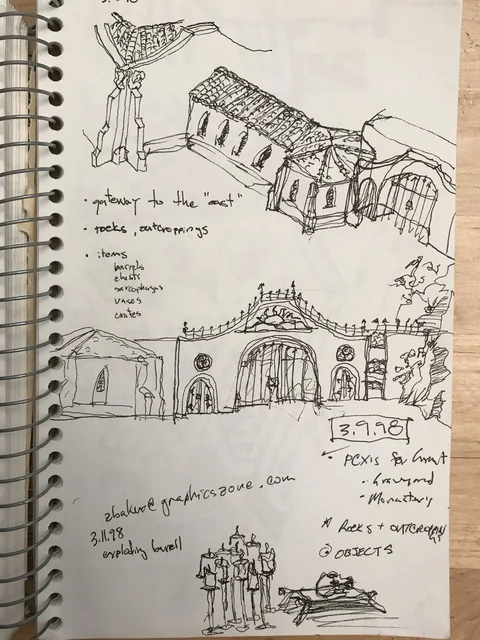 • gateway to the "east"
• rocks, outcroppings
• items
barrels
chests
sarcophagus
vases
crates
3.9.98
• PCXis for Grant
• Graveyard
• Monastery
zbaker@graphicszone.com
3.11.98
exploding barrel
* Rocks + OUTCROPPIN
@ OBJECTS